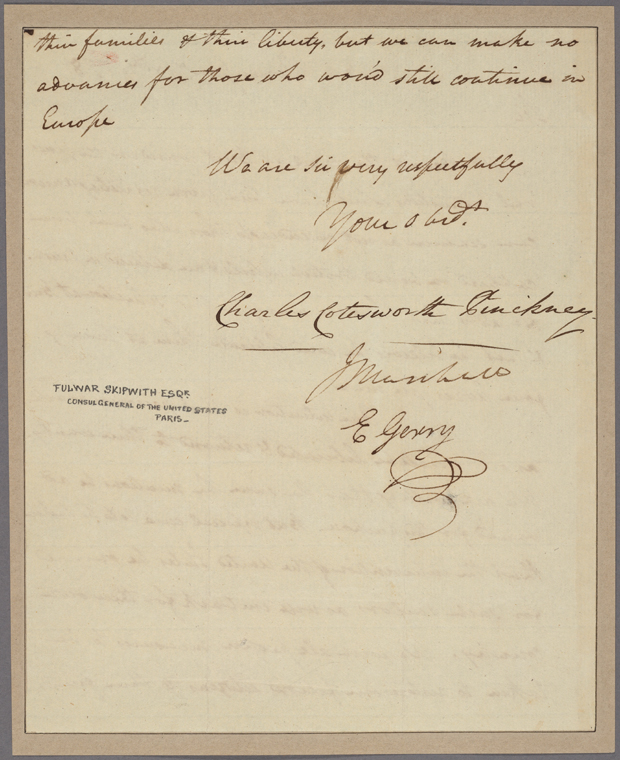 their families & their liberty, but we can make no
advances for those who wou'd still continue in
Europe
We are sir very respectfully
Your obedt.
Charles Cotesworth Pinckney
J Marshall
E Gerry
FULWAR SKIPWITH ESQR.
CONSUL GENERAL OF THE UNITED STATES
PARIS—